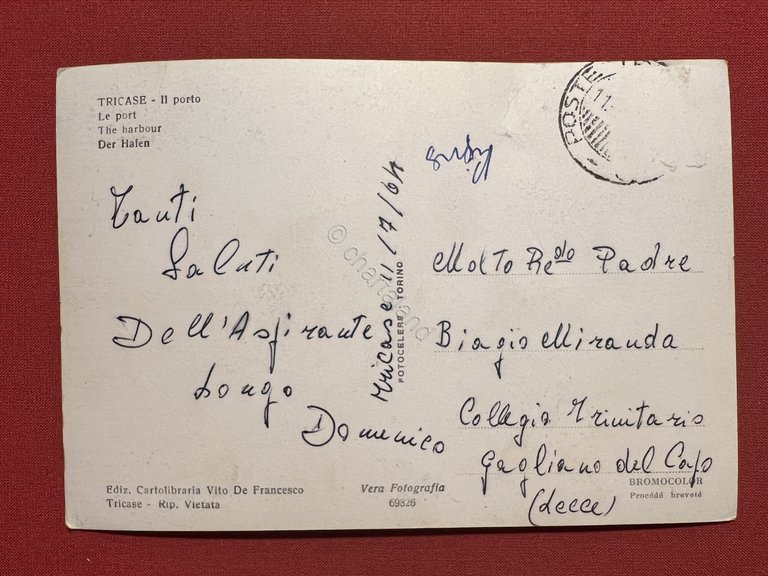 TRICASE - Il porto
Le port
The harbour
Der Hafen
POSTE
11.
Tanti
Saluti
Dell'Aspirante
Longo
Domenico
Tricase 11/7/64
FOTOCELERE TORINO
© chartaland
Molto Re.do Padre
Biagio Miranda
Collegio Trinitaris
Gagliano del Capo
(Lecce)
Ediz. Cartolibraria Vito De Francesco
Tricase - Rip. Vietata
Vera Fotografia
69826
BROMOCOLOR
Procédé breveté